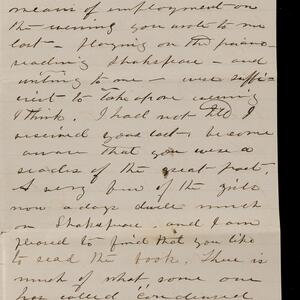 means of employment on
the evening you wrote to me
last - playing on the piano -
reading Shakspeare - and
writing to me - were suffi-
cient to take up one evening
I think. I had not till I
received your last, become
aware that you were a
reader of the great poet.
A very few of the girls
now a days dwell much
on Shakspeare, and I am
pleased to find that you like
to read the book. There is
much of what some one
has called "condensed